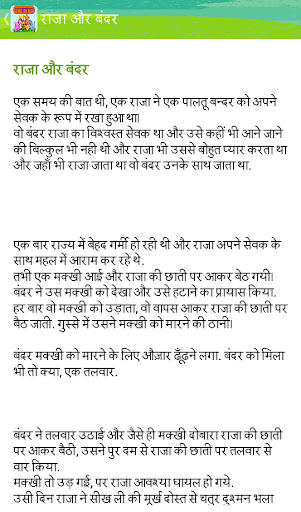 राजा और बंदर
राजा और बंदर
एक समय की बात थी, एक राजा ने एक पालतू बन्दर को अपने
सेवक के रूप में रखा हुआ था।
वो बंदर राजा का विश्वस्त सेवक था और उसे कहीं भी आने जाने
की बिल्कुल भी नही थी और राजा भी उससे बोहुत प्यार करता था
और जहाँ भी राजा जाता था वो बंदर उनके साथ जाता था.
एक बार राज्य में बेहद गर्मी हो रही थी और राजा अपने सेवक के
साथ महल में आराम कर रहे थे.
तभी एक मक्खी आई और राजा की छाती पर आकर बेठ गयी।
बंदर ने उस मक्खी को देखा और उसे हटाने का प्रायास किया.
हर बार वो मक्खी को उड़ाता, वो वापस आकर राजा की छाती पर
बैठ जाती. गुस्से में उसने मक्खी को मारने की ठानी।
बंदर मक्खी को मारने के लिए औज़ार ढूँढ़ने लगा. बंदर को मिला
भी तो क्या, एक तलवार.
बंदर ने तलवार उठाई और जैसे ही मक्खी दोबारा राजा की छाती
पर आकर बैठी, उसने पुर दम से राजा की छाती पर तलवार से
वार किया.
मक्खी तो उड़ गई, पर राजा आवश्या घायल हो गये.
उसी दिन राजा ने सीख ली की मूर्ख दोस्त से चतुर दुश्मन भला